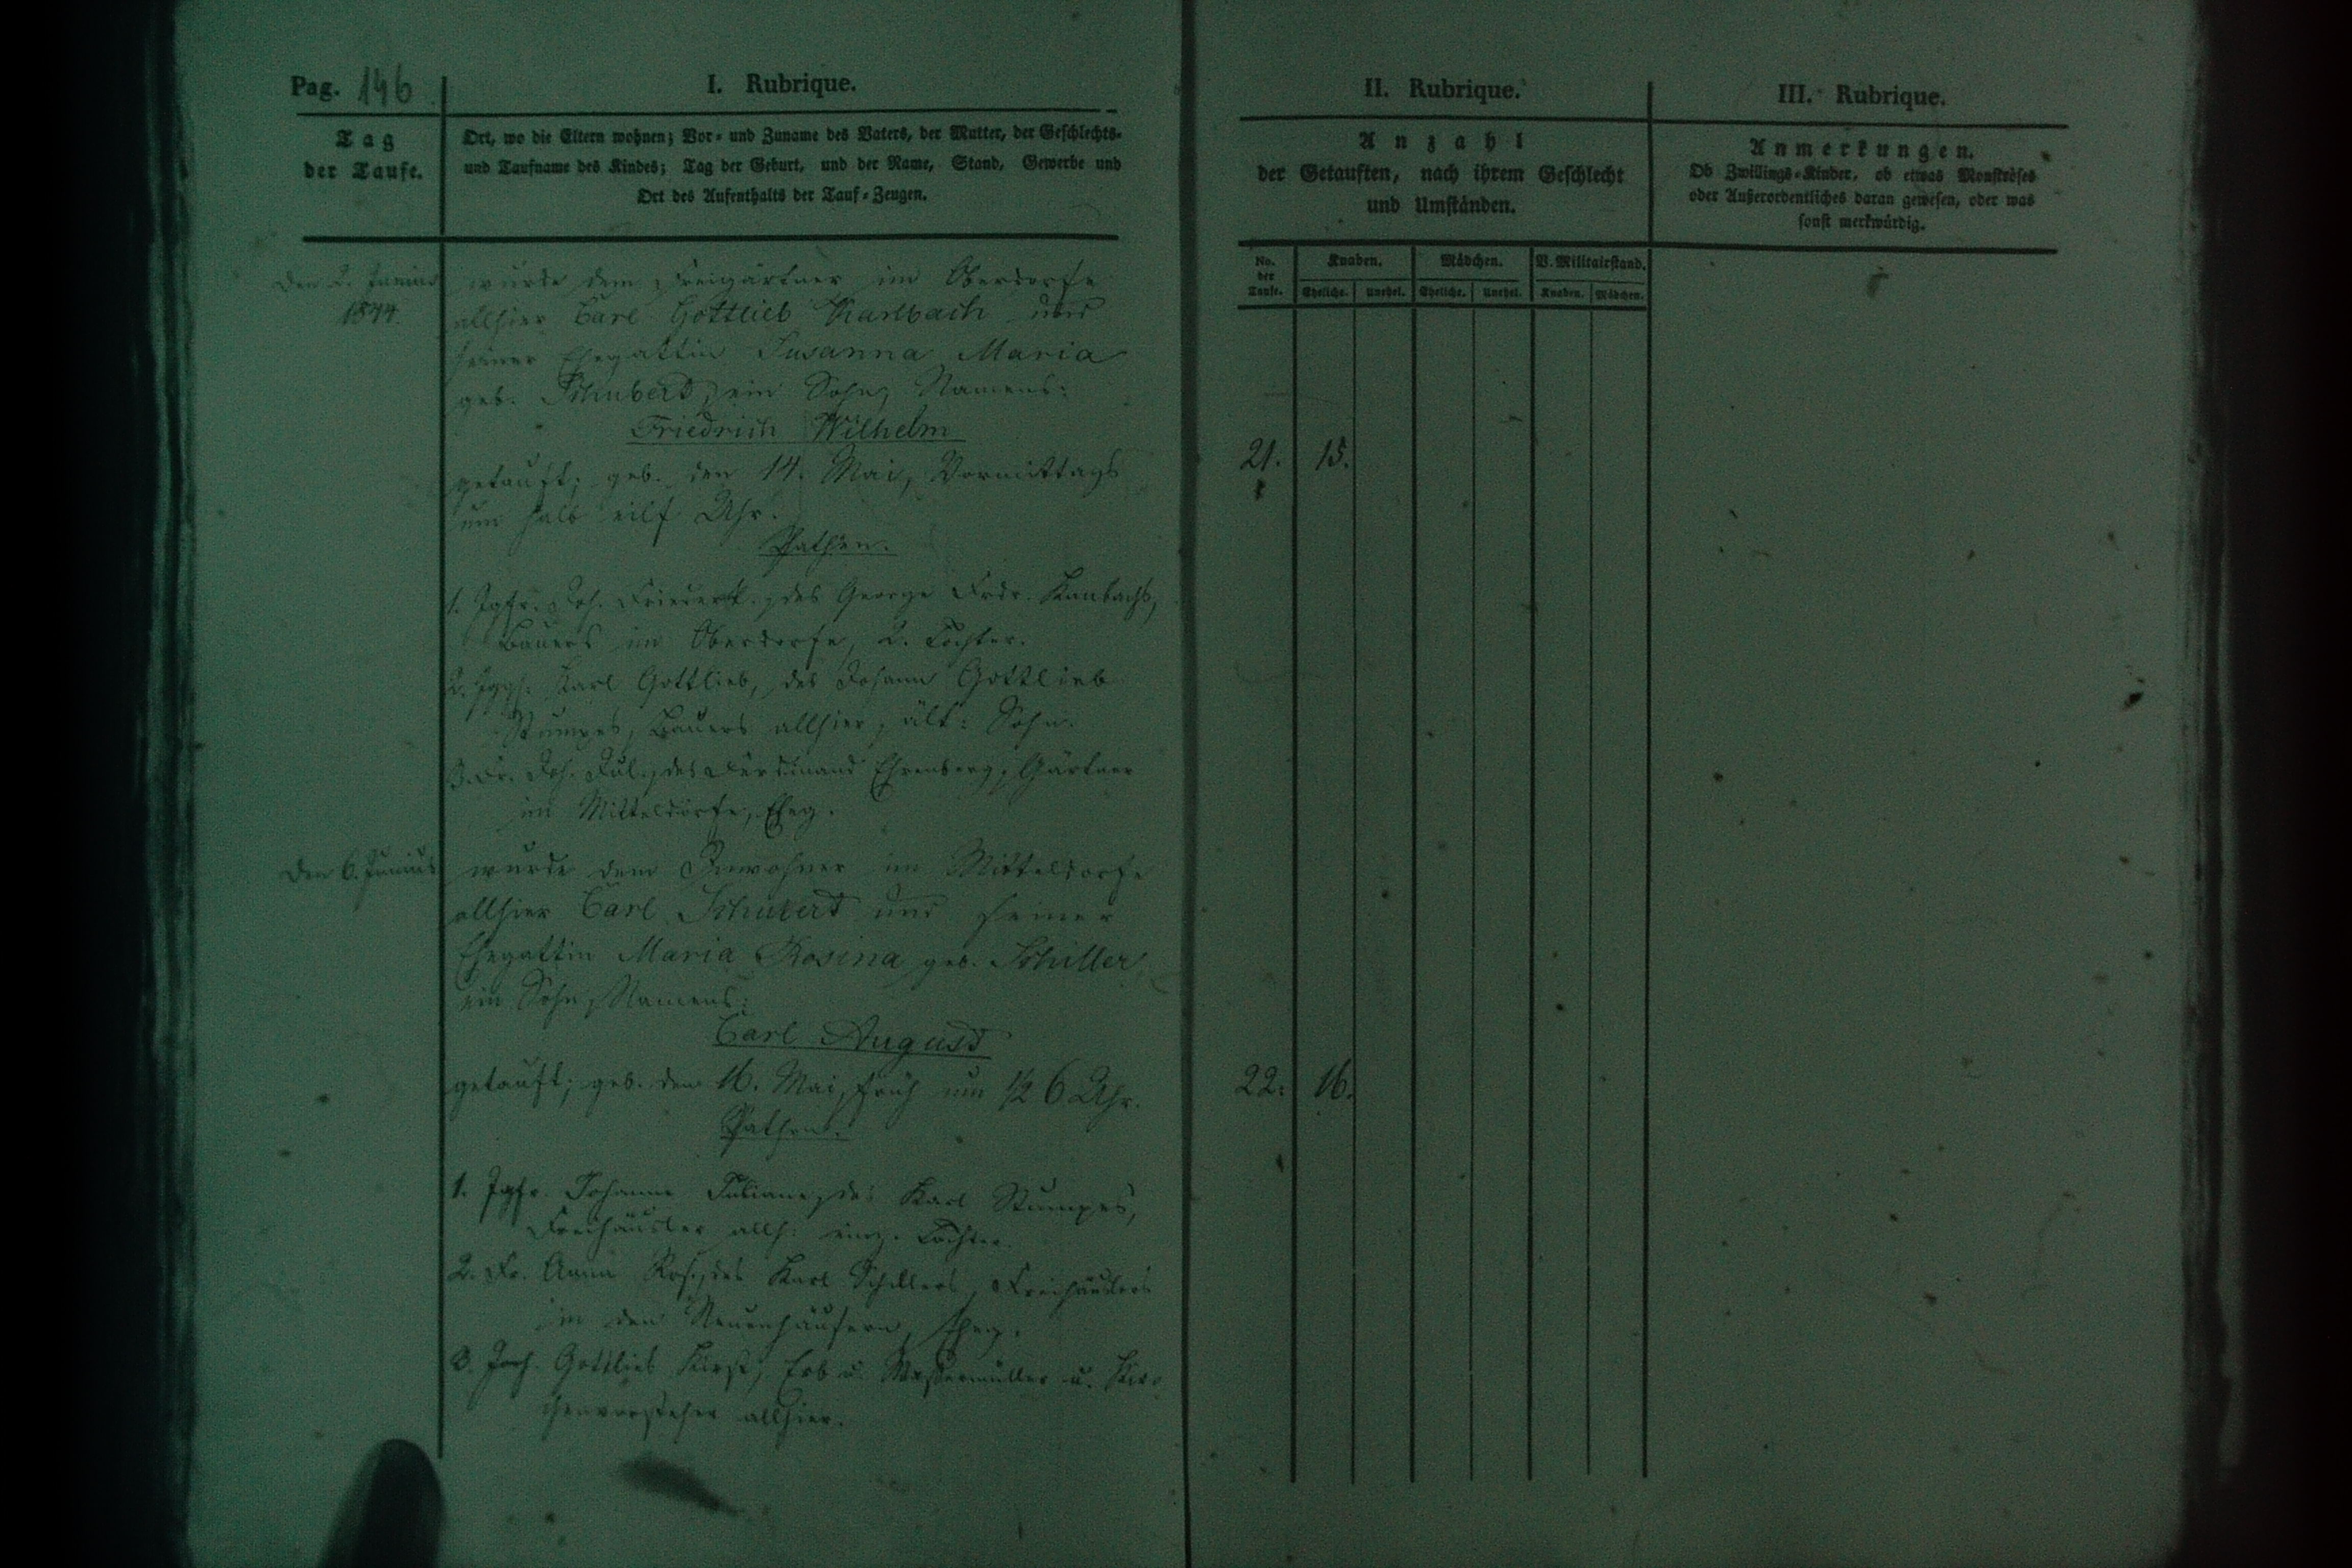 Pag. 146
I. Rubrique.
Tag
der Taufe.
Ort, wo die Eltern wohnen; Vor- und Zuname des Vaters, der Mutter, der Geschlechts-
und Taufname des Kindes; Tag der Geburt, und der Name, Stand, Gewerbe und
Ort des Aufenthalts der Tauf-Zeugen.
Den 2. Junius
1844.
wurde dem Freigärtner im Oberdorfe
allhier Carl Gottlieb Karlbach und
seiner Ehegattin Susanna Maria
geb. Schubert, ein Sohn, Namens:
Friedrich Wilhelm
getauft; geb. den 14. Mai, Vormittags
um halb eilf Uhr.
Pathen.
1. Jgfr. Joh. , des George Frdr.
Bauers im Oberdorfe, 2. Tochter.
2. Jgges. Karl Gottlieb, des Johann Gottlieb
Stumpes, Bauers allhier, ält: Sohn.
3. Fr. Joh. Jul., des Ferdinand Ehrenberg, Gärtner
im Mitteldorfe, Eheg.
Den 6. Junius
wurde dem Inwohner im Mitteldorfe
allhier Carl Schubert und seiner
Ehegattin Maria Rosina geb. Schiller
ein Sohn, Namens:
Carl August
getauft; geb. den 16. Mai, früh um 1/2 6 Uhr.
Pathen:
1. Jgfr. Johanne Juliane, des Karl Stumpes,
Freihäusler allh: einz. Tochter.
2. Fr. Anna Ros., des Karl Schillers, Freihäuslers
in den Neuenhäusern, Eheg.
3. Gottlieb , Erb u. Wassermüller u. Kir-
chenvorsteher allhier.
II. Rubrique.
Anzahl
der Getauften, nach ihrem Geschlecht
und Umständen.
No.
der
Taufe.
Knaben. Mädchen. V. Militairstand.
Eheliche. Unehel. Eheliche. Unehel. Knaben. Mädchen.
21. 15.
22. 16.
III. Rubrique.
Anmerkungen.
Ob Zwillings-Kinder, ob etwas Monströses
oder Außerordentliches daran gewesen, oder was
sonst merkwürdig.